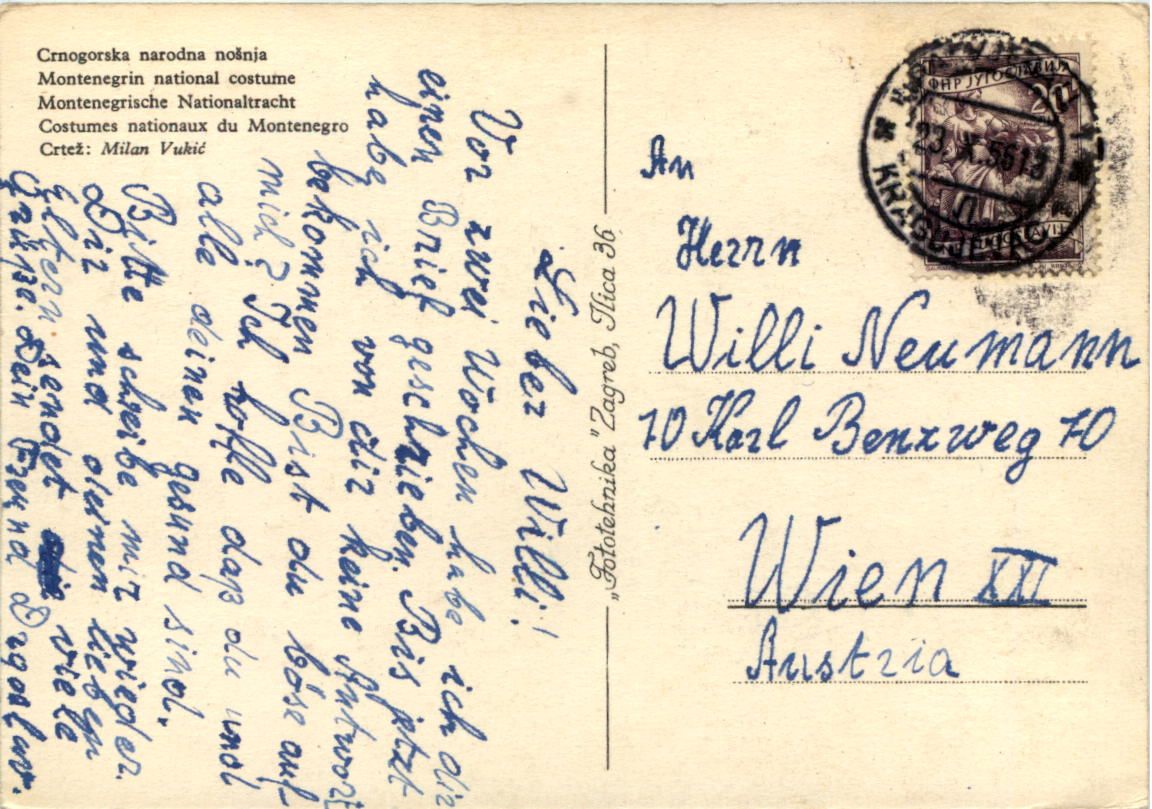 Crnogorska narodna nošnja
Montenegrin national costume
Montenegrische Nationaltracht
Costumes nationaux du Montenegro
Crtež: Milan Vukić
Lieber Willi!
Vor zwei Wochen habe ich dir
einen Brief geschrieben. Bis jetzt
habe ich von dir keine Antwort
bekommen. Bist du böse auf
mich? Ich hoffe daß du und
alle deinen gesund sind.
Bitte schreibe mir wieder.
Dir und deinen lieben
Eltern sendet viele
Grüße. Dein Freund Dragoslav.
„Fototehnika" Zagreb, Ilica 36
ФНР ЈУГОСЛАВИЈА
20
23. X. 56 13
An
Herrn
Willi Neumann
70 Karl Benzweg 70
Wien XXI
Austria